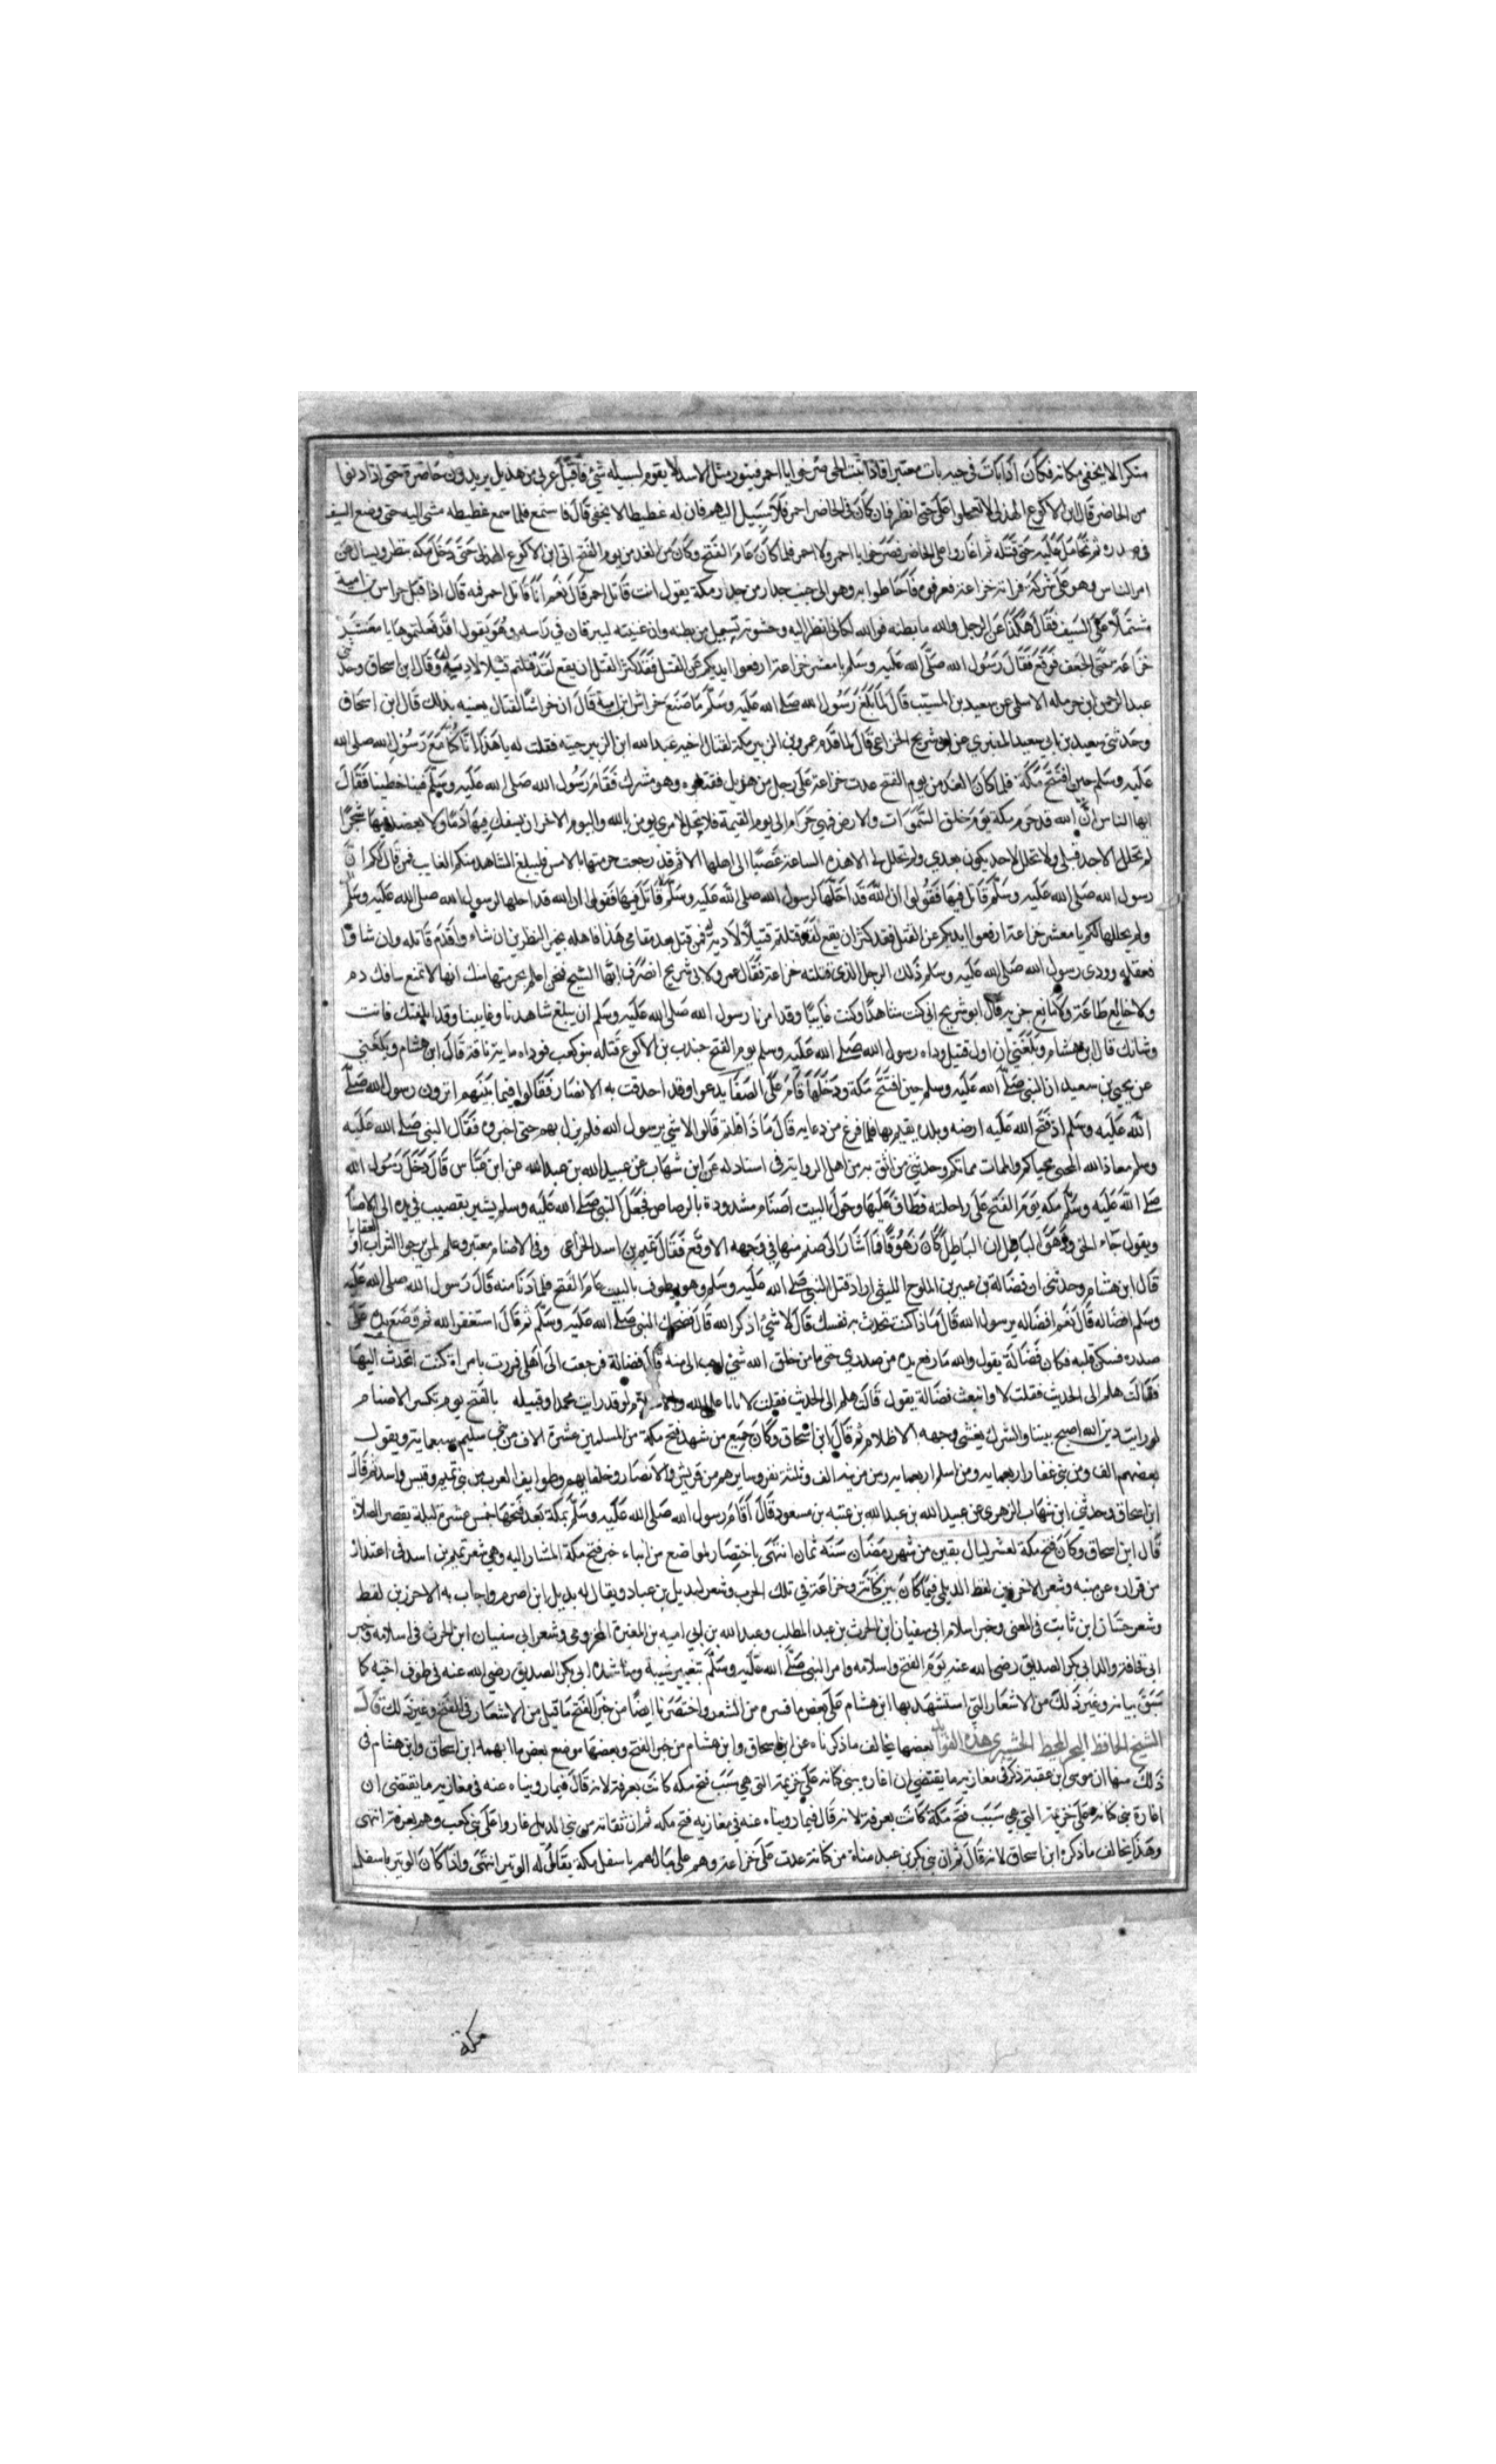 منكرا لا يخفي مكانه فكان اذا بات في حيه بات معتنزا فاذا بيت الحي صرخوا يا احمر فيثور مثل الاسد لا يقوم لسبيله شي فاقبل غزي من هذيل يريدون حاضره حتى اذا دنوا
من الحاضر قال ابن الاكوع الهذلي لا تعجلوا علي حتى انظر فان كان في الحاضر احمر فلا سبيل اليهم فان له غطيطا لا يخفى قال فاستمع فلما سمع غطيطه مشى اليه حتى وضع السيف
في صدره ثم تحامل عليه حتى قتله ثم اغاروا على الحاضر فصرخوا يا احمر ولا احمر فلما كان عام الفتح وكان من الغد من يوم الفتح اتى ابن الاكوع الهذلي حتى دخل مكة ينظر ويسال عن
امر الناس وهو على شركه فراته خزاعة فعرفوه فاحاطوا به وهو الى جنب جدار من جدار مكة يقول انت قاتل احمر قال نعم انا قاتل احمر فمه قال اذ اقبل خراش بن امية
مشتملا على السيف فقال هكذا عن الرجل والله ما بطنه فوالله لكاني انظر اليه وحشوته تسيل من بطنه وان عينيه ليبرقان في راسه وهو يقول اقد فعلتموها يا معشر
خزاعة حتى انجعف فوقع فقال رسول الله صلى الله عليه وسلم يا معشر خزاعة ارفعوا ايديكم عن القتل فقد كثر القتل ان يقع لقد قتلتم قتيلا لادينه وقال ابن اسحاق وحدثني
عبد الرحمن ابن حرمله الاسلمي عن سعيد بن المسيب قال لما بلغ رسول الله صلى الله عليه وسلم ما صنع خراش ابن امية قال ان خراشا لقتال يعيبه بذلك قال ابن اسحاق
وحدثني سعيد بن ابي سعيد المقبري عن ابي شريح الخزاعي قال لما قدم عمرو بن الزبير مكة لقتال اخيه عبد الله ابن الزبير جيته فقلت له يا هذا انا كنا مع رسول الله صلى الله
عليه وسلم حين افتتح مكة فلما كان الغد من يوم الفتح عدت خزاعة على رجل من هذيل فقتلوه وهو مشرك فقام رسول الله صلى الله عليه وسلم فينا خطيبا فقال
ايها الناس ان الله قد حرم مكة يوم خلق السموات والارض فهي حرام الى يوم القيمة فلا يحل لامري يومن بالله واليوم الاخر ان يسفك فيها دما ولا يعضد فيها شجرا
لم تحلل لاحد قبلي ولا تحلل لاحد يكون بعدي ولم تحلل لي الا هذه الساعة غضبا الى اهلها الا ثم قد رجعت حرمتها بالامس فليبلغ الشاهد منكم الغايب فمن قال لكم ان
رسول الله صلى الله عليه وسلم قاتل فيها فقولوا ان الله قد احلها لرسول الله صلى الله عليه وسلم قاتل فيها فقولوا ان الله قد احلها لرسول الله صلى الله عليه وسلم
ولم يحللها لكم يا معشر خزاعة ارفعوا ايديكم عن القتل فقد كثر ان يقع لقد قتلتم قتيلا لادينه فمن قتل بعد مقامي هذا فاهله بخير النظرين ان شاء واقدم قاتله وان شاوا
فعقله وودى رسول الله صلى الله عليه وسلم ذلك الرجل الذي قتلته خزاعة فقال عمرو لابي شريح انصرف ايها الشيخ فنحن اعلم بحرمتها منك انها لا تمنع سافك دم
ولا خالع طاعة ولا مانع جزية قال ابو شريح اني كنت شاهدا وكنت غايبا وقد امرنا رسول الله صلى الله عليه وسلم ان يبلغ شاهدنا وغايبنا وقد ابلغتك فانت
وشانك قال ابن هشام وبلغني ان اول قتيل وداه رسول الله صلى الله عليه وسلم يوم الفتح جنيدب بن الاكوع قتله بنو كعب فوداه ماية ناقة قال ابن هشام وبلغني
عن يحيى بن سعيد ان النبي صلى الله عليه وسلم حين افتتح مكة ودخلها قام على الصفا يدعوا وقد احدقت به الانصار فقالوا فيما بينهم اترون رسول الله صلى
الله عليه وسلم اذ فتح الله عليه ارضه وبلده يقيم بها فلما فرغ من دعايه قال ماذا قلتم قالوا لا شي يرسول الله فلم يزل بهم حتى اخبروه فقال النبي صلى الله عليه
وسلم معاذ الله المحيى محياكم والممات مماتكم وحدثني من اثق به من اهل الرواية في اسناد له عن ابن شهاب عن عبيد الله بن عبد الله عن ابن عباس قال دخل رسول الله
صلى الله عليه وسلم مكة يوم الفتح على راحلته فطاف عليها وحول البيت اصنام مشدودة بالرصاص فجعل النبي صلى الله عليه وسلم يشير بقضيب في يده الى الاصنام
ويقول جاء الحق وزهق الباطل ان الباطل كان زهوقا فما اشار الى صنم منها في وجهه الا وقع فقال تميم بن اسد الخزاعي وفي الاصنام معتبر وعلم لمن يرجوا الثواب او العقابا
قال ابن هشام وحدثني ان فضالة بن عمير بن الملوح الليثي اراد قتل النبي صلى الله عليه وسلم وهو يطوف بالبيت عام الفتح فلما دنا منه قال رسول الله صلى الله عليه
وسلم افضاله قال نعم افضاله يرسول الله قال ماذا كنت تحدث به نفسك قال لا شئ اذكر الله قال فضحك النبي صلى الله عليه وسلم ثم قال استغفر الله ثم وضع يده على
صدره فسكن قلبه فكان فضالة يقول والله ما رفع يده من صدري حتى ما من خلق الله شي احب الي منه قال فضالة فرجعت الى اهلي فمررت بامراة كنت اتحدث اليها
فقالت هلم الى الحديث فقلت لا وانبعث فضالة يقول قالت هلم الى الحديث فقلت لا يابا علي الله والاسلام لو قد رايت محمدا وقبيله بالفتح يوم تكسر الاصنام
لرايت دين الله اصبح بيننا والشرك يغشى وجهه الاظلام ثم قال ابن اسحاق وكان جميع من شهد فتح مكة من المسلمين عشرة الاف من بني سليم سبعماية ويقول
بعضهم الف ومن بني غفار اربعمايه ومن اسلم اربعمايه ومن مزينه الف وثلثة نفر وسايرهم من قريش والانصار وحلفايهم وطوايف العرب من بني تميم وقيس واسد ثم قال
ابن اسحاق وحدثني ابن شهاب الزهري عن عبيد الله بن عبد الله بن عتبه بن مسعود قال اقام رسول الله صلى الله عليه وسلم بمكة بعد فتحها خمس عشرة ليلة يقصر الصلاة
قال ابن اسحاق وكان فتح مكة لعشر ليال بقين من شهر رمضان سنة ثمان انتهى باختصار لمواضع من انباء خبر فتح مكة المشار اليه وهي شعر تميم بن اسد في اعتذار
من فراره عن منبه وشعر الاخزر بن لقط الديلي فيما كان بين كنانة وخزاعة في تلك الحرب وشعر لبديل بن عباد ويقال له بديل ابن اصرم واجاب به الاحزر بن لقط
وشعر حسان ابن ثابت في المعنى وخبر اسلام ابي سفيان ابن الحرث بن عبد المطلب وعبد الله بن ابي اميه بن المغيرة المخزومي وشعر ابي سفيان ابن الحرث في اسلامه وخبر
ابي قحافة والد ابي بكر الصديق رضي الله عنه يوم الفتح واسلامه وامر النبي صلى الله عليه وسلم بتغيير شيبه ومناشدة ابي بكر الصديق رضي الله عنه في طوق اخته كما
سبق بيانه وغير ذلك من الاشعار التي استشهد بها ابن هشام على بعض ما فسره من الشعر واختصرنا ايضا من خبر الفتح ما قيل من الاشعار في الفتح وغير ذلك قال
الشيخ الحافظ البحر المحيط هذه الفوائد بعضها يخالف ما ذكرناه عن ابن اسحاق وابن هشام من خبر الفتح وبعضها موضح بعض ما ابهمه ابن اسحاق وابن هشام في
ذلك منها ان موسى ابن عقبة ذكر في مغازيه ما يقتضي ان اغارة بني كنانه على خزيمة التي هي سبب فتح مكه كانت بعرفة لانه قال فيما رويناه عنه في مغازيه ما يقتضى ان
اغارة بني كنانه على خزيمة التي هي سبب فتح مكة كانت بعرفة لانه قال فيما رويناه عنه في مغازيه فتح مكه ثم ان نفاثة من بني الديل اغاروا على بني كعب وهم بعرفة انتهى
وهذا يخالف ما ذكره ابن اسحاق لانه قال ثم ان بني بكر بن عبد مناة من كنانة عدت على خزاعة وهم على مالهم باسفل مكة يقال له الوتير انتهى واذا كان الوتير باسفل
مكة